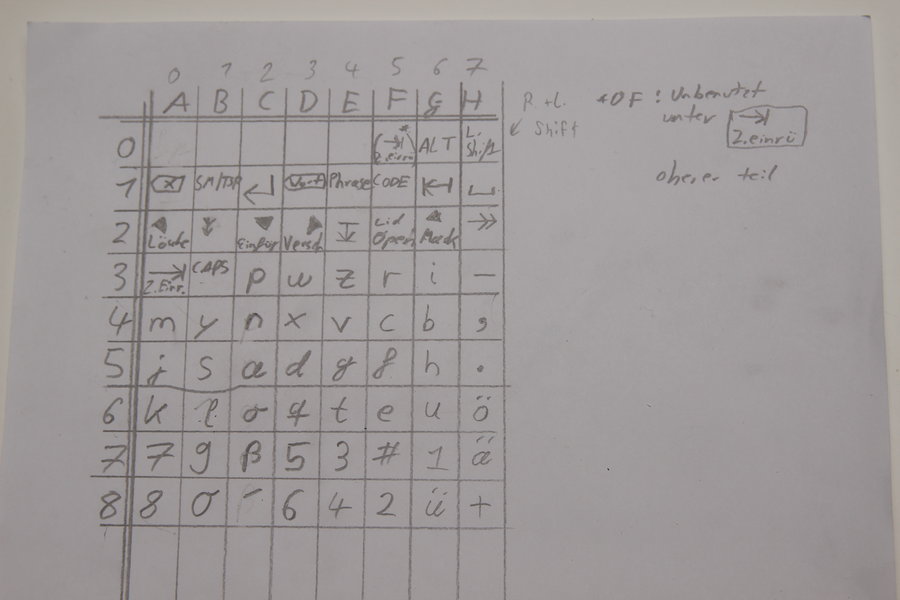 0 1 2 3 4 5 6 7
A B C D E F G H
R.+L. Shift
*0F: Unbenutzt
unter
Z.einrü
oberer teil
0 * ALT L. Shift
1 X SM/TDR Phrase CODE
2 Löude Einfüg Versch Lid Open
3 Z.Einr. CAPS p w z r i –
4 m y n x v c b ,
5 j s a d g f h .
6 k l o q t e u ö
7 7 9 ß 5 3 # 1 ä
8 8 0 ´ 6 4 2 ü +